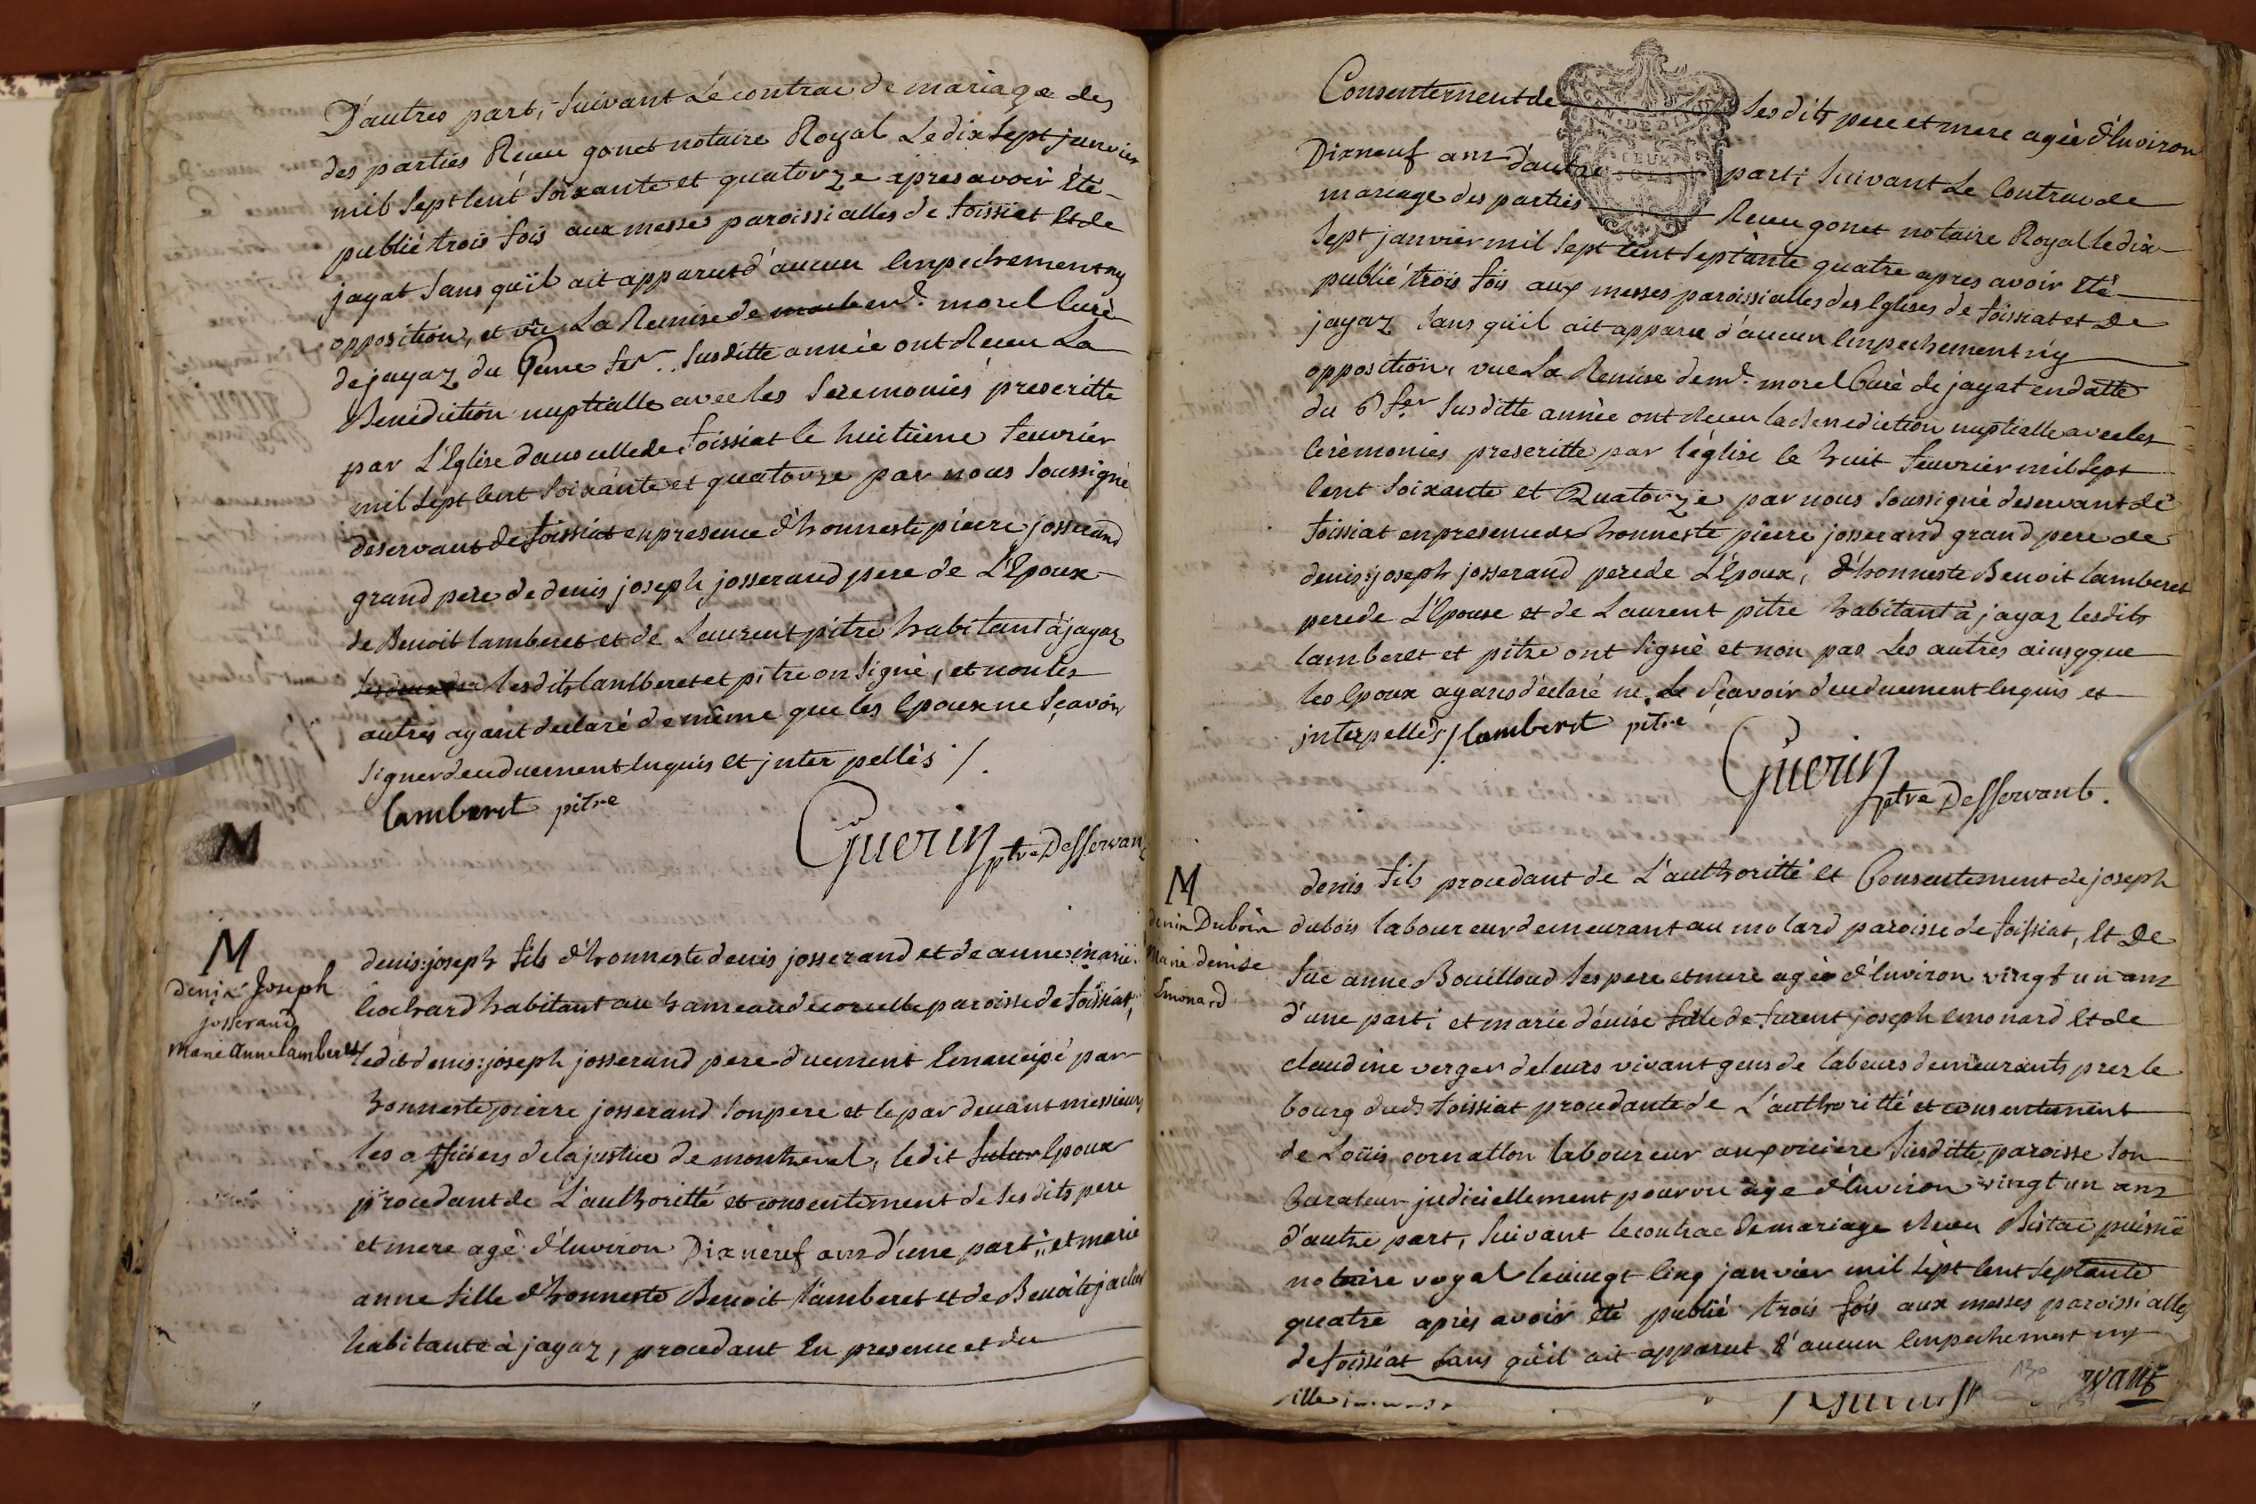 D'autres part, suivant Le contrac de mariage des
des parties Receu gonet notaire Royal Le dix sept janvier
mil sept cent soixante et quatorze apres avoir été
publié trois fois aux messes paroissialles de foissiat et de
jayat sans qu'il ait apparut d'aucun Empechement ny
opposition, et vüe La Remise de mr. morel Curé
de jayaz du 6eme fer. susditte année ont Receu La
Benediction nuptialle avec les Ceremonies prescritte
par L'Eglise dans celle de foissiat le huitieme feuvrier
mil sept cent soixante et quatorze par nous soussigné
deservant de foissiat en presence d'honneste pierre josserand
grand pere de denis joseph josserand pere de L'Epoux
de Benoit lamberet et de Laurent pitre habitant à jayaz
lesdits lamberet et pitre on signé, et non les
autres ayant declaré de même que les Epoux ne sçavoir
signer deuduement Enquis et jnterpellés /.
lamberet pitre
Guerin ptre Desservant
M
M
denix Joseph
josserand
marie anne lamberet
denis: joseph fils d'honneste denis josserand et de anne marie
Cochard habitant au hameau de corcelle paroisse de foissiat,
ledit denis: joseph josserand pere duement Emancipé par
honneste pierre josserand son pere et le par devant messieurs
les officiers de la justice de montrevel, ledit futur Epoux
procedant de L'authoritté et consentement de ses dits pere
et mere agé d'Environ Dix neuf ans d'une part; et marie
anne fille d'honneste Benoit lamberet et de Benoite
habitante à jayaz, procedant En presence et du
Consentement de ses dits pere et mere agée d'Environ
Dix neuf ans d'autre part; suivant Le Contrac de
mariage des parties Receu gonet notaire Royal le dix
sept janvier mil sept cent septante quatre apres avoir été
publié trois fois aux messes paroissialles des Eglises de foissiat et de
jayaz sans qu'il ait apparu d'aucun Empechement n'y
opposition, vue La Remise de mr. morel Curé de jayat en datte
du 6 fer susditte année ont Receu la benediction nuptialle avec les
Cérèmonies prescritte par l'église le huit feuvrier mil sept
Cent soixante et Quatorze par nous soussigné deservant de
foissiat en presence de honneste pierre josserand grand pere de
denis: joseph josserand pere de L'Epoux, d'honneste Benoit lamberet
pere de L'Epouse et de Laurent pitre habitant à jayaz lesdits
lamberet et pitre ont signé et non pas Les autres ainsy que
les Epoux ayans déclaré ne Le sçavoir deuduement Enquis et
jnterpellés /. lamberet pitre
Guerin
ptre Desservant.
M
denis Dubois
Marie denise
Emonard
denis fils procedant de L'authoritté et Consentement de joseph
dubois laboureur demeurant au molard paroisse de foissiat, Et De
fue anne Bouilloud ses pere et mere agée d'Environ vingt un ans
d'une part; et marie dénise fille de furent joseph emonard Et de
claudine verger de leurs vivant gens de labeurs demeurants prez le
bourg dudt foissiat procedante de L'authoritté et consentement
de Loüis cornatton laboureur susditte paroisse son
Curateur judiciellement pourvu agé d'Environ vingt un ans
d'autre part, suivant le contrac de mariage Receu Bistac puisné
notaire royal le vingt Cinq janvier mil sept cent septante
quatre après avoir été publié trois fois aux messes paroissialles
de foissiat sans qu'il ait apparut d'aucun Empechement ny
130